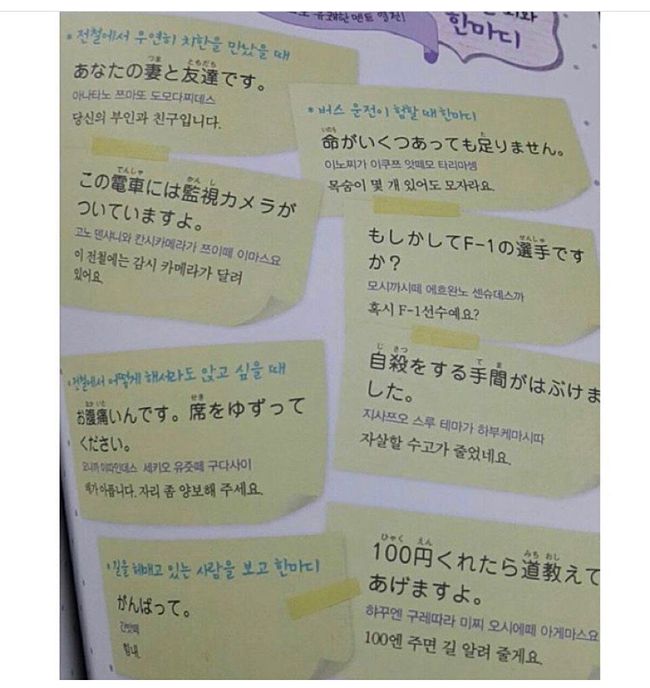 유쾌한 멘트 열전!
한마디
• 전철에서 우연히 치한을 만났을 때
つま ともだち
あなたの妻と友達です。
아나타노 쯔마또 도모다찌데스
당신의 부인과 친구입니다.
でんしゃ かんし
この電車には監視カメラが
ついていますよ。
고노 덴샤니와 칸시카메라가 쯔이떼 이마스요
이 전철에는 감시 카메라가 달려
있어요.
• 전철에서 어떻게 해서라도 앉고 싶을 때
せき
お腹痛いんです。席をゆずって
ください。
오나까 이따인데스 세키오 유즛떼 구다사이
배가 아픕니다. 자리 좀 양보해 주세요.
• 길을 헤매고 있는 사람을 보고 한마디
がんばって。
간밧떼
힘내.
• 버스 운전이 험할 때 한마디
いのち た
命がいくつあっても足りません。
이노찌가 이쿠쯔 앗떼모 타리마셍
목숨이 몇 개 있어도 모자라요.
せんしゅ
もしかしてF-1の選手です
か？
모시까시떼 에흐완노 센슈데스까
혹시 F-1선수예요?
じさつ てま
自殺をする手間がはぶけま
した。
지사쯔오 스루 테마가 하부케마시따
자살할 수고가 줄었네요.
ひゃく えん みち おし
100円くれたら道教えて
あげますよ。
햐꾸엔 구레따라 미찌 오시에떼 아게마스요
100엔 주면 길 알려 줄게요.